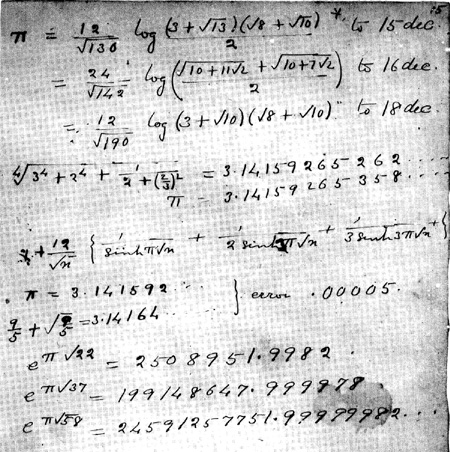 π = 12/√130 log (3+√13)(√8+√10)/2 * to 15 dec.
= 24/√142 log (√10+11√2 + √10+7√2 / 2) to 16 dec.
= 12/√190 log (3+√10)(√8+√10) " to 18 dec.
∜3⁴+2⁴+ 1/2+(2/3)² = 3.14159265262....
π = 3.14159265358....
+ 12/√n { 1/sinh π√n + 1/2 sinh 2π√n + 1/3 sinh 3π√n + {
π = 3.141592... } error .00005.
9/5 + √9/5 = 3.14164...
e^π√22 = 2508951.9982.
e^π√37 = 199148647.999978
e^π√58 = 24591257751.99999982...